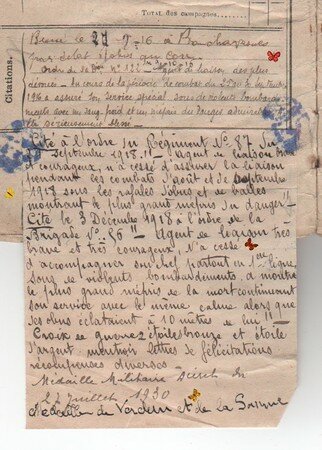 Total des campagnes
Citations.
Blessé le 27 9-16 à Bouchavesnes
par éclat d'obus
ordre de de liaison des plus
au cours de la période de combat du 25 au
1916 a assuré son service spécial sous de violents bombarde-
ments avec un sang froid et un mépris du danger admirables
Cité à l'ordre du Régiment N° 87 du
septembre 1918 !! Agent de liaison
courageux, n'a cessé d'assurer la liaison
pendant les combats d'août et de septembre
1918 sous les rafales d'obus et de balles
montrant le plus grand mépris du danger
Cité le 3 Décembre 1918 à l'ordre de la
Brigade N° 86 !! Agent de liaison très
brave et très courageux. N'a cessé
d'accompagner son chef partout en 1re ligne
sous de violents bombardements, a montré
le plus grand mépris de la mort continuant
son service avec le même calme alors que
les obus éclataient à 10 mètres de lui !!
Croix de guerre étoiles bronze et étoile
d'argent mentions lettres de félicitations
récompenses diverses
Médaille Militaire Décret du
22 Juillet 1930
Médaillon de Verdun et de la Somme